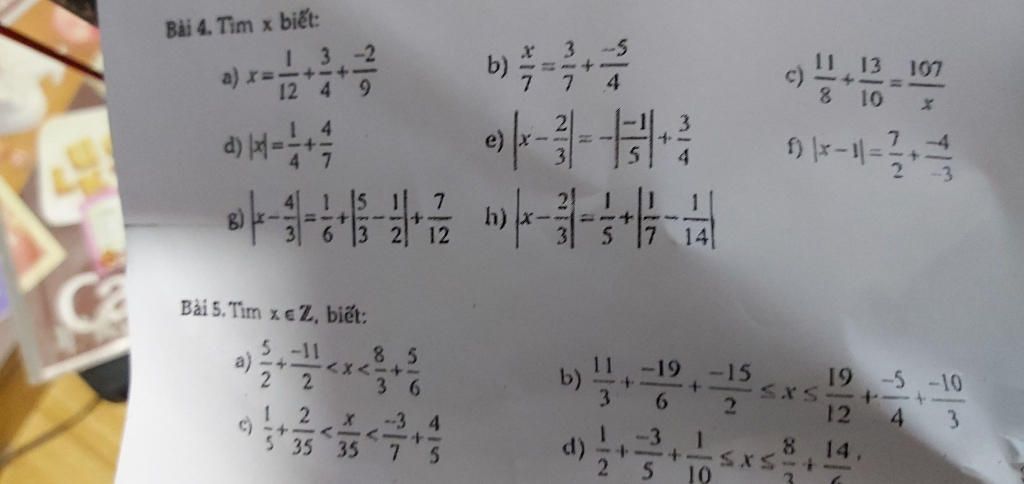 Bài 4. Tìm x biết:
a) x = 1/12 + 3/4 + -2/9 b) x/7 = 3/7 + -5/4 c) 11/8 + 13/10 = 107/x
d) |x| = 1/4 + 4/7 e) |x - 2/3| = -|-1/5| + 3/4 f) |x - 1| = 7/2 + -4/-3
g) |x - 4/3| = 1/6 + |5/3 - 1/2| + 7/12 h) |x - 2/3| = 1/5 + |1/7 - 1/14|
Bài 5. Tìm x ∈ Z, biết:
a) 5/2 + -11/2 < x < 8/3 + 5/6 b) 11/3 + -19/6 + -15/2 ≤ x ≤ 19/12 + -5/4 + -10/3
c) 1/5 + 2/35 < x/35 < -3/7 + 4/5 d) 1/2 + -3/5 + 1/10 ≤ x ≤ 8/3 + 14/6
Ca